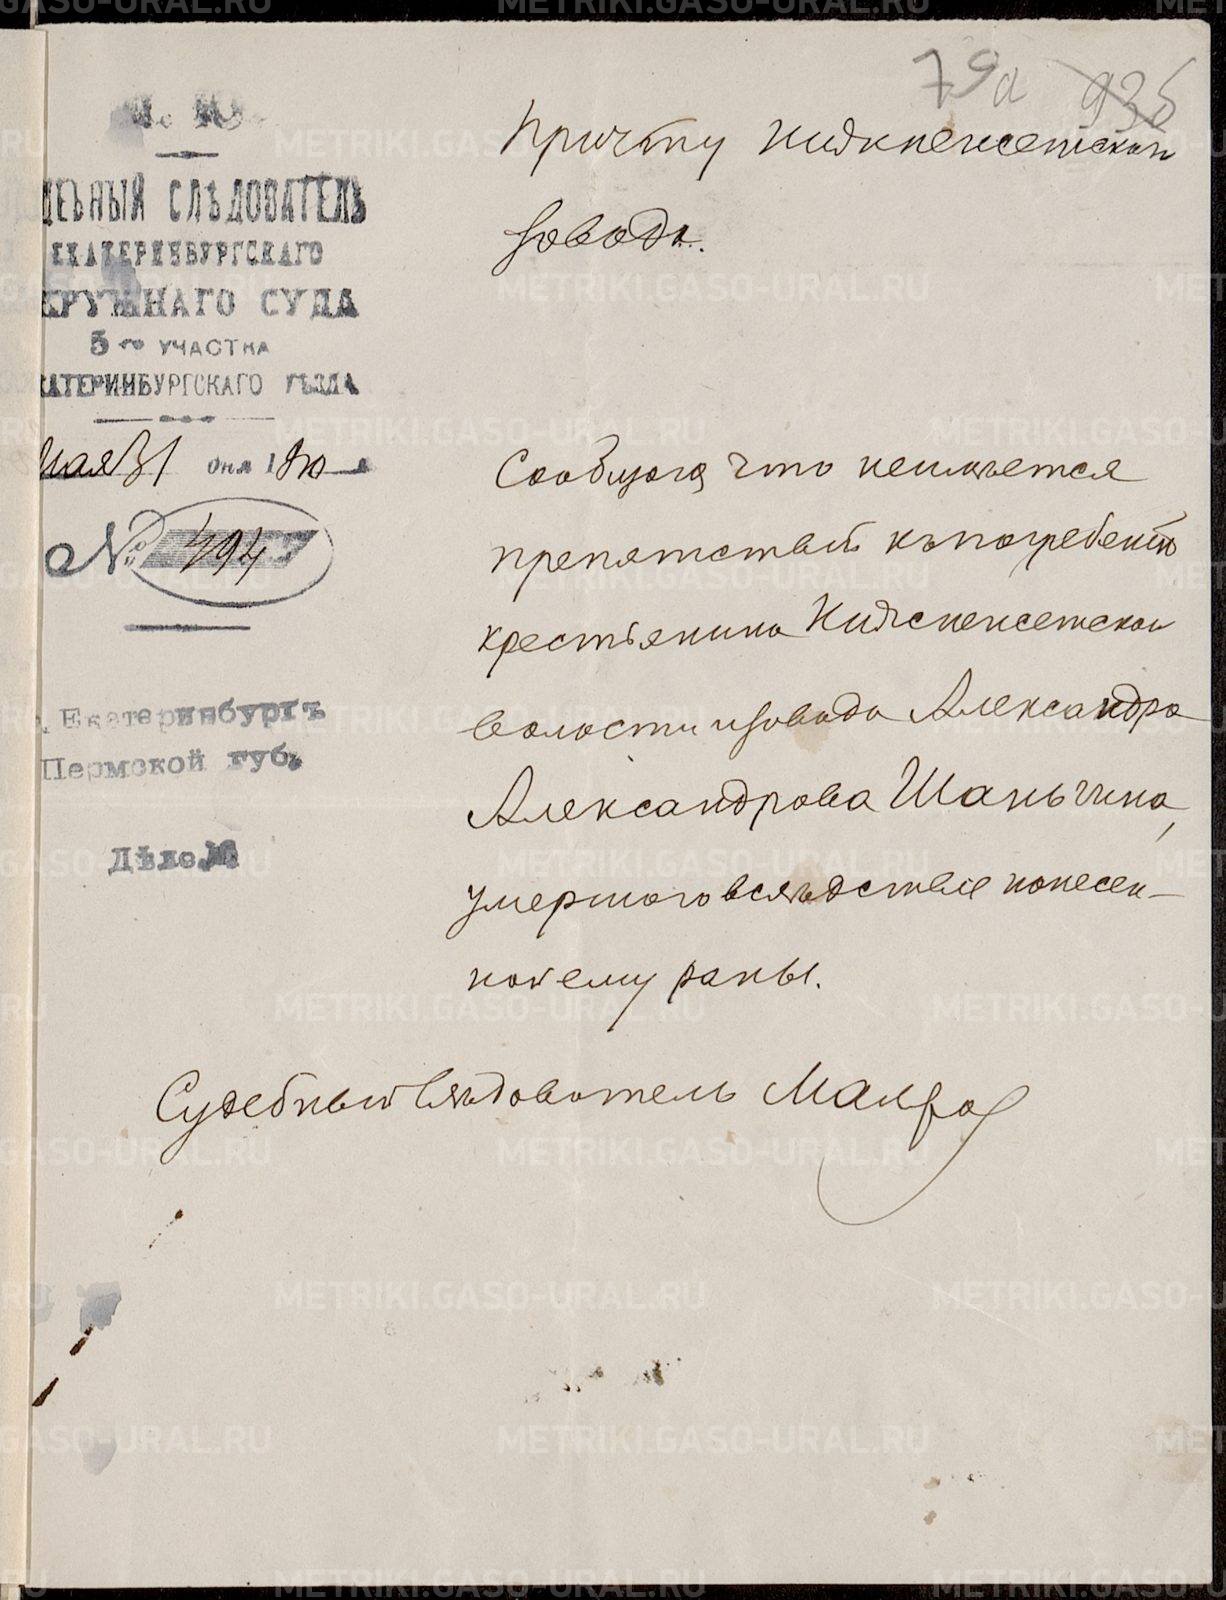 79а 93б
М. Ю.
ДЕБНЫЙ СЛѢДОВАТЕЛЬ
ЕКАТЕРИНБУРГСКАГО
КРУЖНАГО СУДА
5 го УЧАСТКА
КАТЕРИНБУРГСКАГО УѢЗДА
Мая 31 дня 1910 г.
№ 494
г. Екатеринбургъ
Пермской губ.
Дѣло №
Причту Нижнеисетскаго
завода.
Сообщаю, что неимѣется
препятствій къ погребенію
крестьянина Нижнеисетской
волости и завода Александра
Александрова Шаньгина,
умершаго вслѣдствіе нанесен-
ной ему раны.
Судебный Слѣдователь
METRIKI.GASO-URAL.RU